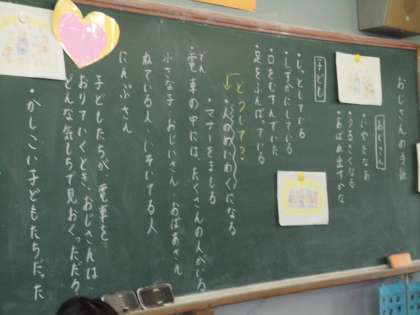 おじさんの手紙
おじさん
・いやだなあ
・うるさくなる
・あばれ出すかな
子ども
・じっとしている
・しずかにしている
・口をむすんでいた
・足をふんばっている
どうして？
・人のめいわくになる
・マナーをまもる
・電車の中には、たくさんの人がいる
でん
小さな子 おじいさん おばあさん
ねている人 いそいでいる人
にんぷさん
子どもたちが 電車を
おりていくとき、おじさんは、
どんな気もちで見おくっただろ
・かしこい子どもたちだった